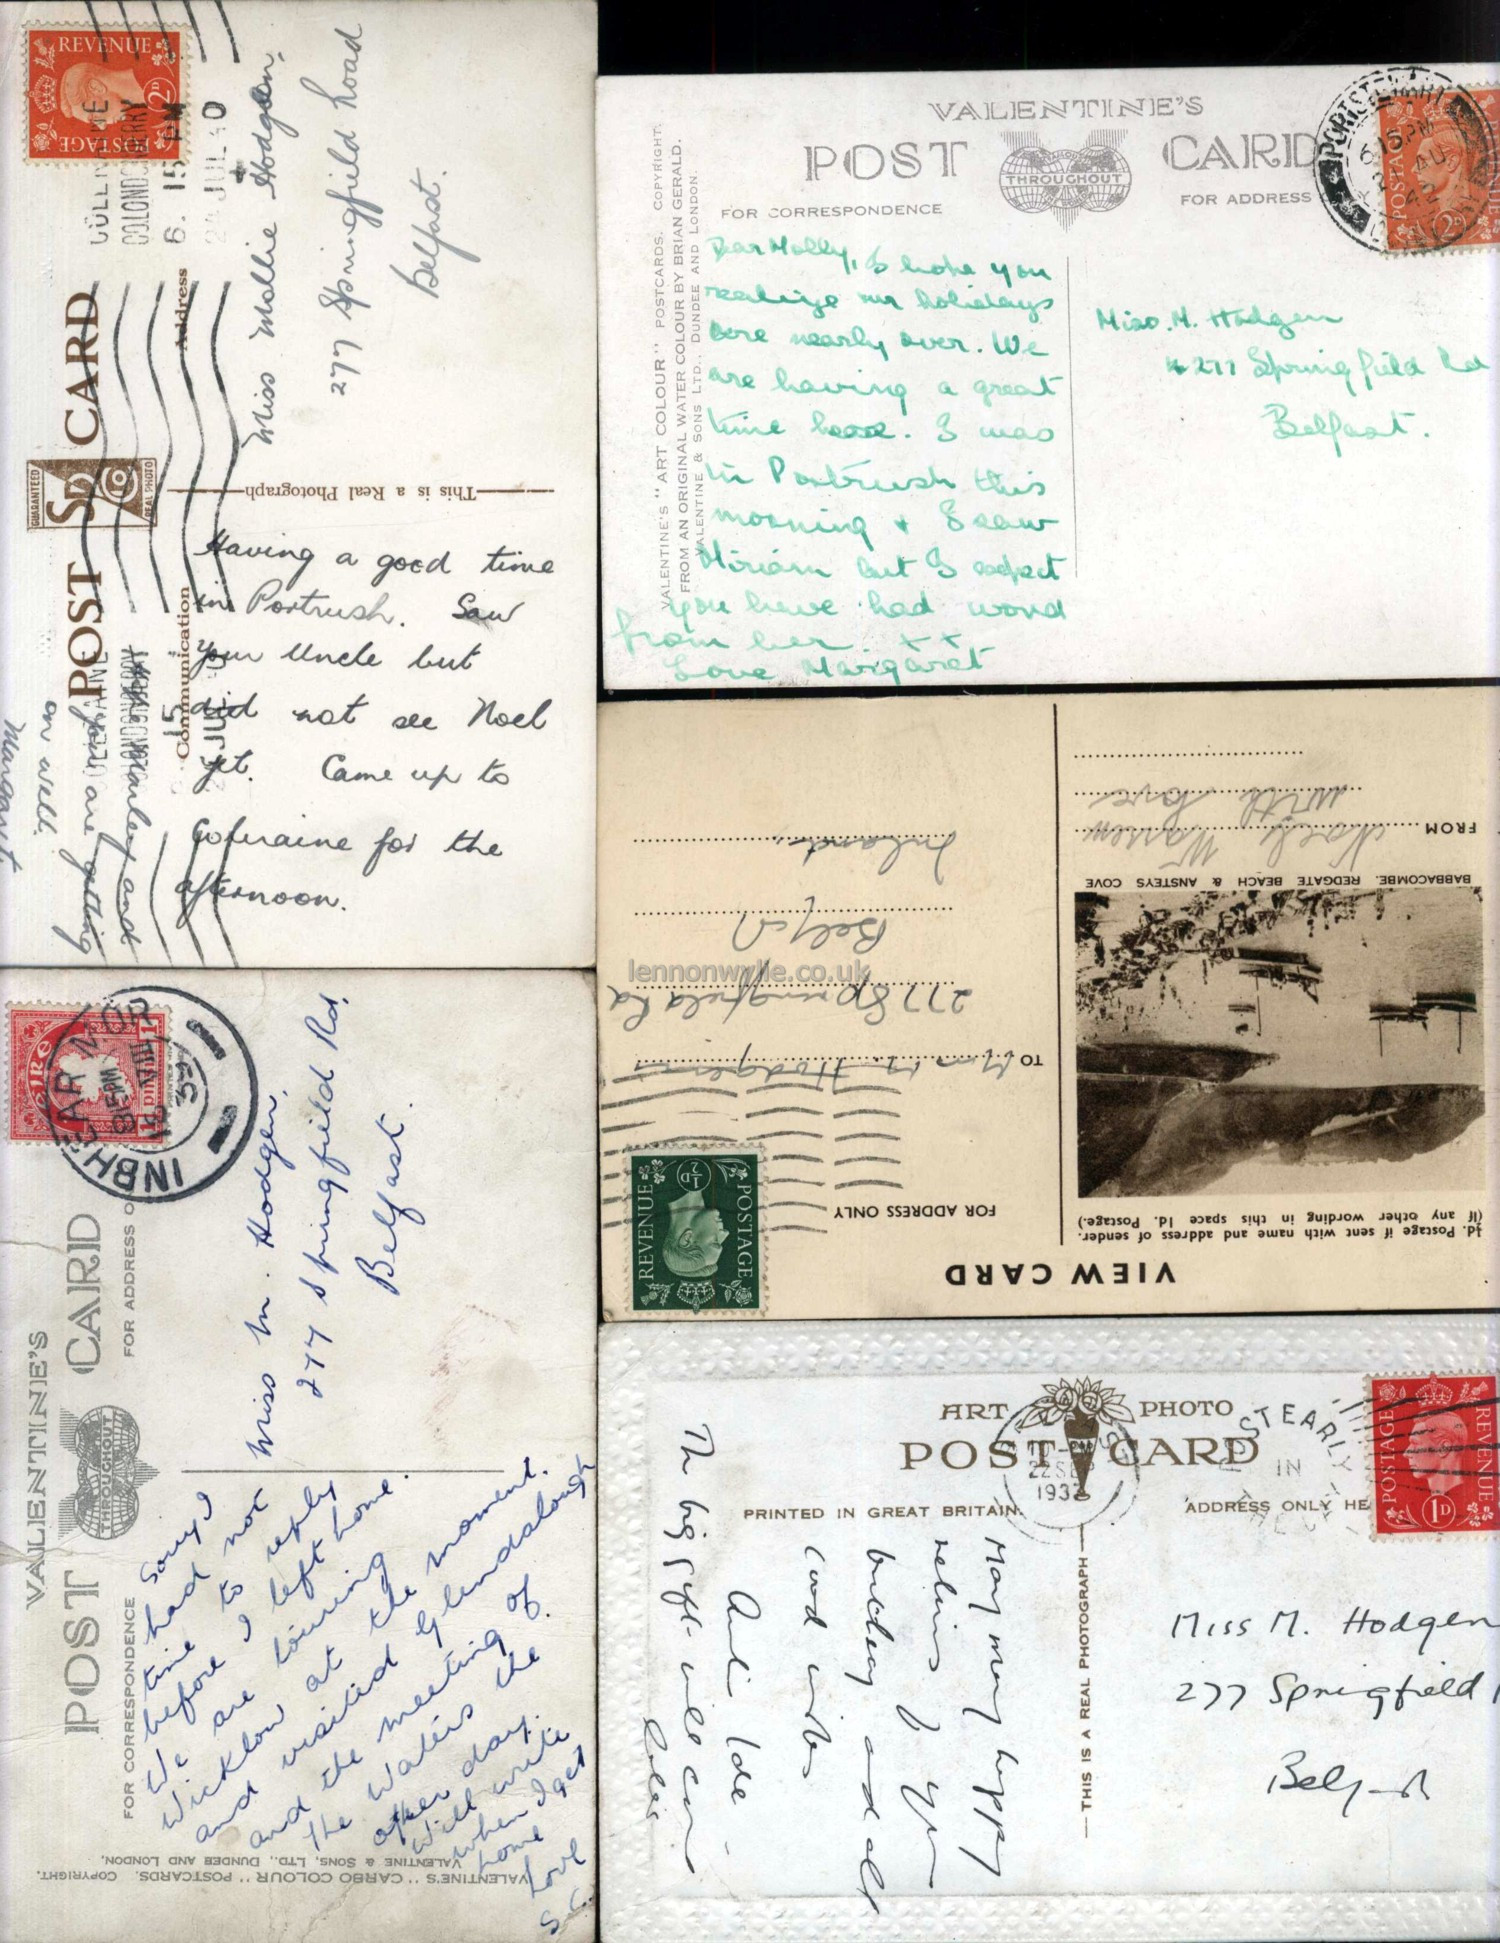 REVENUE
POSTAGE
2D
COLERAINE
CO.LONDONDERRY
6. 15 PM
24 JUL 40
POST CARD
GUARANTEED
REAL PHOTO
Address
Communication
This is a Real Photograph
Miss Mollie Hodgen.
277 Springfield Road
Belfast.
Having a good time
in Portrush. Saw
your Uncle but
did not see Noel
yet. Came up to
Coleraine for the
afternoon.
and
you are getting
on well.
Margaret.
VALENTINE'S
POST CARD
THROUGHOUT
FOR CORRESPONDENCE
FOR ADDRESS
VALENTINE'S "ART COLOUR" POSTCARDS. COPYRIGHT.
FROM AN ORIGINAL WATER COLOUR BY BRIAN GERALD.
VALENTINE & SONS LTD., DUNDEE AND LONDON.
6 15PM
AU
42
POSTAGE
2D
Dear Molly, I hope you
realize our holidays
are nearly over. We
are having a great
time here. I was
in Portrush this
morning & I saw
Miriam but I expect
you have had word
from her. x x
Love Margaret
Miss. M. Hodgen
277 Springfield Rd
Belfast.
VIEW CARD
½d. Postage if sent with name and address of sender.
(If any other wording in this space 1d. Postage.)
FOR ADDRESS ONLY
REVENUE
POSTAGE
½D
BABBACOMBE. REDGATE BEACH & ANSTEYS COVE
FROM
Warren
with love
TO
Miss M. Hodgens
277 Springfield Rd
Belfast
Ireland.
lennonwylie.co.uk
éire
1d pinginn 1
INBHEAR MOR
815PM
39
VALENTINE'S
POST CARD
THROUGHOUT
FOR CORRESPONDENCE
FOR ADDRESS O
VALENTINE'S "CARBO COLOUR" POSTCARDS. COPYRIGHT.
VALENTINE & SONS, LTD., DUNDEE AND LONDON.
Miss M. Hodgen.
277 Springfield Rd.
Belfast.
Sorry I
had not
time to reply
before I left home.
We are touring
Wicklow at the moment.
and visited Glendalough
and the meeting of
the Waters the
other day.
Will write
when I get
home
Love
S.C.
ART PHOTO
POST CARD
PRINTED IN GREAT BRITAIN.
ADDRESS ONLY HE
THIS IS A REAL PHOTOGRAPH
22 SEP
193
ST EARLY
IN
POSTAGE
REVENUE
1D
May many happy
returns of your
birthday and all
Good wishes
Auntie Ide
The big gift will come
later
Miss M. Hodgen
277 Springfield
Belfast